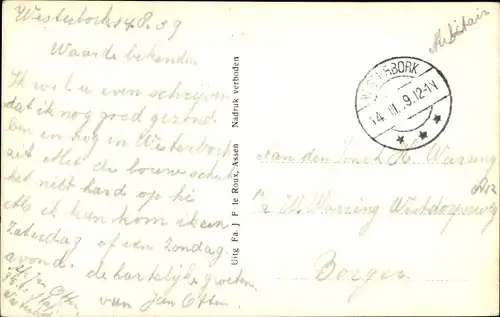 Westerbork 14.8.39
Waarde bekenden
Ik wil u even schrijven
dat ik nog goed gezond
ben en nog in Westerbork
zit Met die bouw
het niet hard op hé
Als ik kan kom ik een
Zaterdag of een Zondag
avond. de hartelijke groeten
van Jan Otten
Jan Otten
Uitg Fa. J F le Roux, Assen Nadruk verboden
Militair
WESTERBORK
14.III.9.12-1V
Aan den Heer H. Warring
W. Warring Westdorperweg
Borger